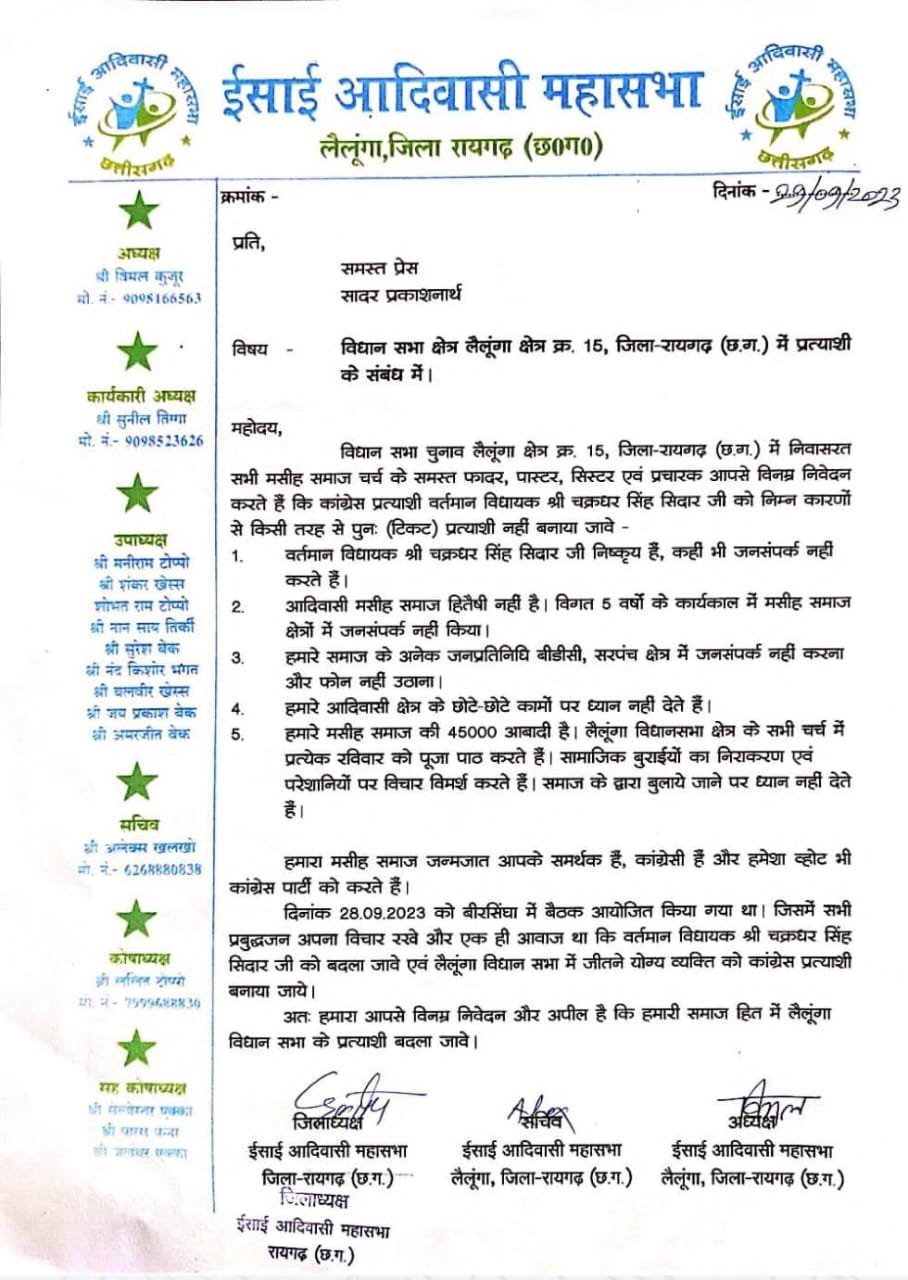 ईसाई आदिवासी महासभा
छत्तीसगढ़
ईसाई आदिवासी महासभा
लैलूंगा,जिला रायगढ़ (छ0ग0)
ईसाई आदिवासी महासभा
छत्तीसगढ़
क्रमांक -
दिनांक - 29/09/2023
अध्यक्ष
श्री विमल कुजूर
मो. नं.- 9098166563
कार्यकारी अध्यक्ष
श्री सुनील तिग्गा
मो. नं.- 9098523626
उपाध्यक्ष
श्री मनीराम टोप्पो
श्री शंकर खेस्स
शोभत राम टोप्पो
श्री नान साय तिर्की
श्री सुरेश बेक
श्री नंद किशोर भगत
श्री बलवीर खेस्स
श्री जय प्रकाश बेक
श्री अमरजीत बेक
सचिव
श्री अलेक्स खलखो
मो. नं.- 6268880838
कोषाध्यक्ष
श्री ललित टोप्पो
मो. नं.- 7999688830
सह कोषाध्यक्ष
श्री सेल्वेस्टर एक्का
श्री पारस पन्ना
श्री एक्का
प्रति,
समस्त प्रेस
सादर प्रकाशनार्थ
विषय - विधान सभा क्षेत्र लैलूंगा क्षेत्र क्र. 15, जिला-रायगढ़ (छ.ग.) में प्रत्याशी
के संबंध में।
महोदय,
विधान सभा चुनाव लैलूंगा क्षेत्र क्र. 15, जिला-रायगढ़ (छ.ग.) में निवासरत
सभी मसीह समाज चर्च के समस्त फादर, पास्टर, सिस्टर एवं प्रचारक आपसे विनम्र निवेदन
करते हैं कि कांग्रेस प्रत्याशी वर्तमान विधायक श्री चक्रधर सिंह सिदार जी को निम्न कारणों
से किसी तरह से पुनः (टिकट) प्रत्याशी नहीं बनाया जावे -
1. वर्तमान विधायक श्री चक्रधर सिंह सिदार जी निष्कृय हैं, कहीं भी जनसंपर्क नहीं
करते हैं।
2. आदिवासी मसीह समाज हितैषी नहीं है। विगत 5 वर्षो के कार्यकाल में मसीह समाज
क्षेत्रों में जनसंपर्क नहीं किया।
3. हमारे समाज के अनेक जनप्रतिनिधि बीडीसी, सरपंच क्षेत्र में जनसंपर्क नहीं करना
और फोन नहीं उठाना।
4. हमारे आदिवासी क्षेत्र के छोटे-छोटे कामों पर ध्यान नहीं देते हैं।
5. हमारे मसीह समाज की 45000 आबादी है। लैलूंगा विधानसभा क्षेत्र के सभी चर्च में
प्रत्येक रविवार को पूजा पाठ करते हैं। सामाजिक बुराईयों का निराकरण एवं
परेशानियों पर विचार विमर्श करते हैं। समाज के द्वारा बुलाये जाने पर ध्यान नहीं देते
हैं।
हमारा मसीह समाज जन्मजात आपके समर्थक हैं, कांग्रेसी हैं और हमेशा व्होट भी
कांग्रेस पार्टी को करते हैं।
दिनांक 28.09.2023 को बीरसिंघा में बैठक आयोजित किया गया था। जिसमें सभी
प्रबुद्धजन अपना विचार रखे और एक ही आवाज था कि वर्तमान विधायक श्री चक्रधर सिंह
सिदार जी को बदला जावे एवं लैलूंगा विधान सभा में जीतने योग्य व्यक्ति को कांग्रेस प्रत्याशी
बनाया जाये।
अतः हमारा आपसे विनम्र निवेदन और अपील है कि हमारी समाज हित में लैलूंगा
विधान सभा के प्रत्याशी बदला जावे।
जिलाध्यक्ष
ईसाई आदिवासी महासभा
जिला-रायगढ़ (छ.ग.)
जिलाध्यक्ष
ईसाई आदिवासी महासभा
रायगढ़ (छ.ग.)
Alex
सचिव
ईसाई आदिवासी महासभा
लैलूंगा, जिला-रायगढ़ (छ.ग.)
अध्यक्ष
ईसाई आदिवासी महासभा
लैलूंगा, जिला-रायगढ़ (छ.ग.)